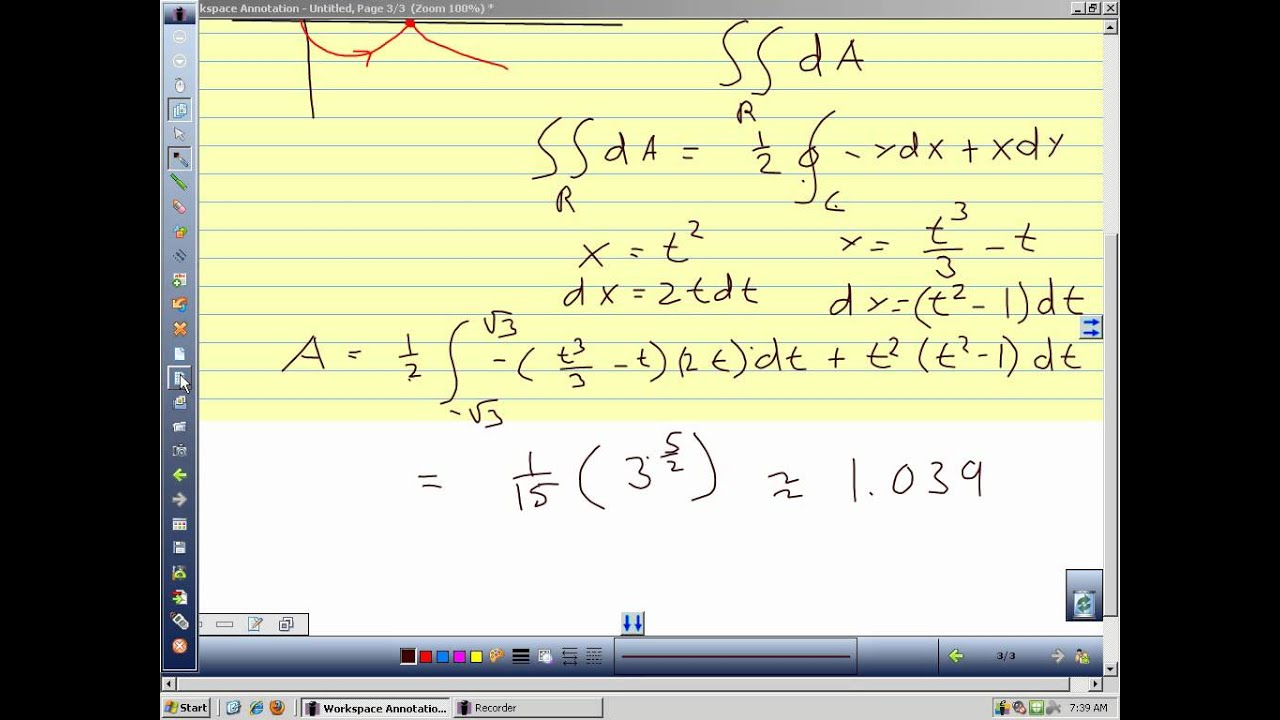 kspace Annotation - Untitled, Page 3/3 (Zoom 100%) *
∬_R dA
∬_R dA = 1/2 ∮_C -ydx + xdy
x = t^2 y = t^3/3 - t
dx = 2tdt dy = (t^2 - 1)dt
A = 1/2 ∫_{-√3}^{√3} -(t^3/3 - t)(2t)dt + t^2(t^2-1)dt
= 1/15 (3^{5/2}) ≈ 1.039
3/3
Start Workspace Annotatio... Recorder 7:39 AM